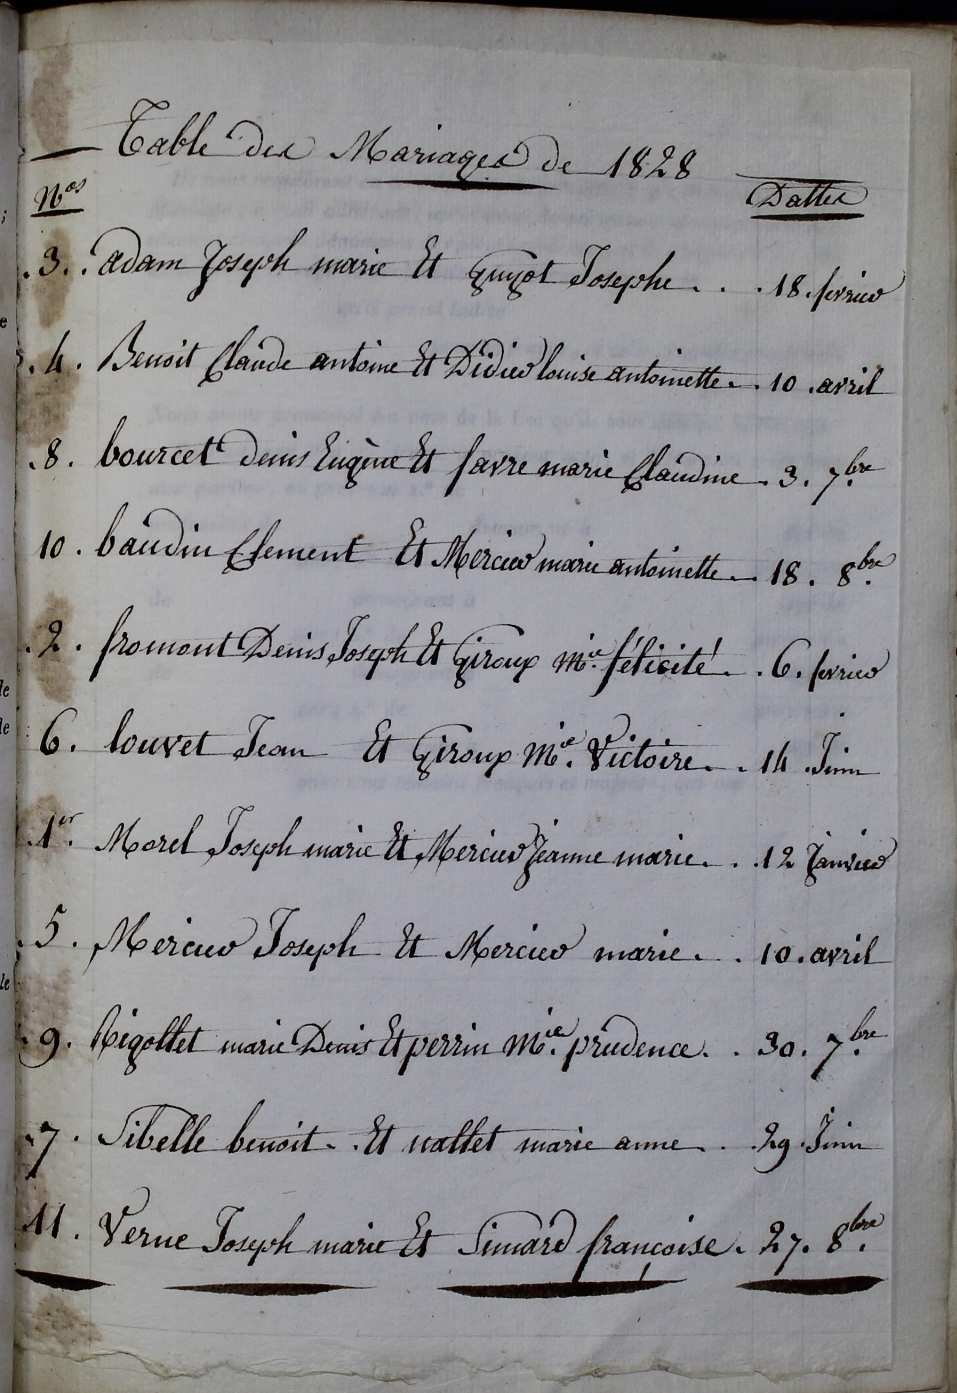 Table des Mariages de 1828
Nos Dattes
.3. adam Joseph marie Et Guyot Josephe . . . 18. fevrier
.4. Benoit Claude antoine Et Didier louise antoinette . . 10 . avril
.8. bourcet denis Eugène Et favre marie Claudine . 3. 7bre
10. baudin Clement Et Mercier marie antoinette . . 18. 8bre.
.2. fromont Denis Joseph Et Giroux Mie. félicité . . 6. fevrier
6. louvet Jean Et Giroux Mie. Victoire . . 14 . Juin
.1er. Morel Joseph marie Et Mercier Jeanne marie . . 12 Janvier
.5. Mercier Joseph Et Mercier marie . . 10. avril
.9. Rigottet marie Denis Et perrin Mie. prudence . . 30. 7bre
.7. Sibelle benoit . . Et nallet marie anne . . 29 . Juin
11. Verne Joseph marie Et Simard françoise . 27. 8bre.